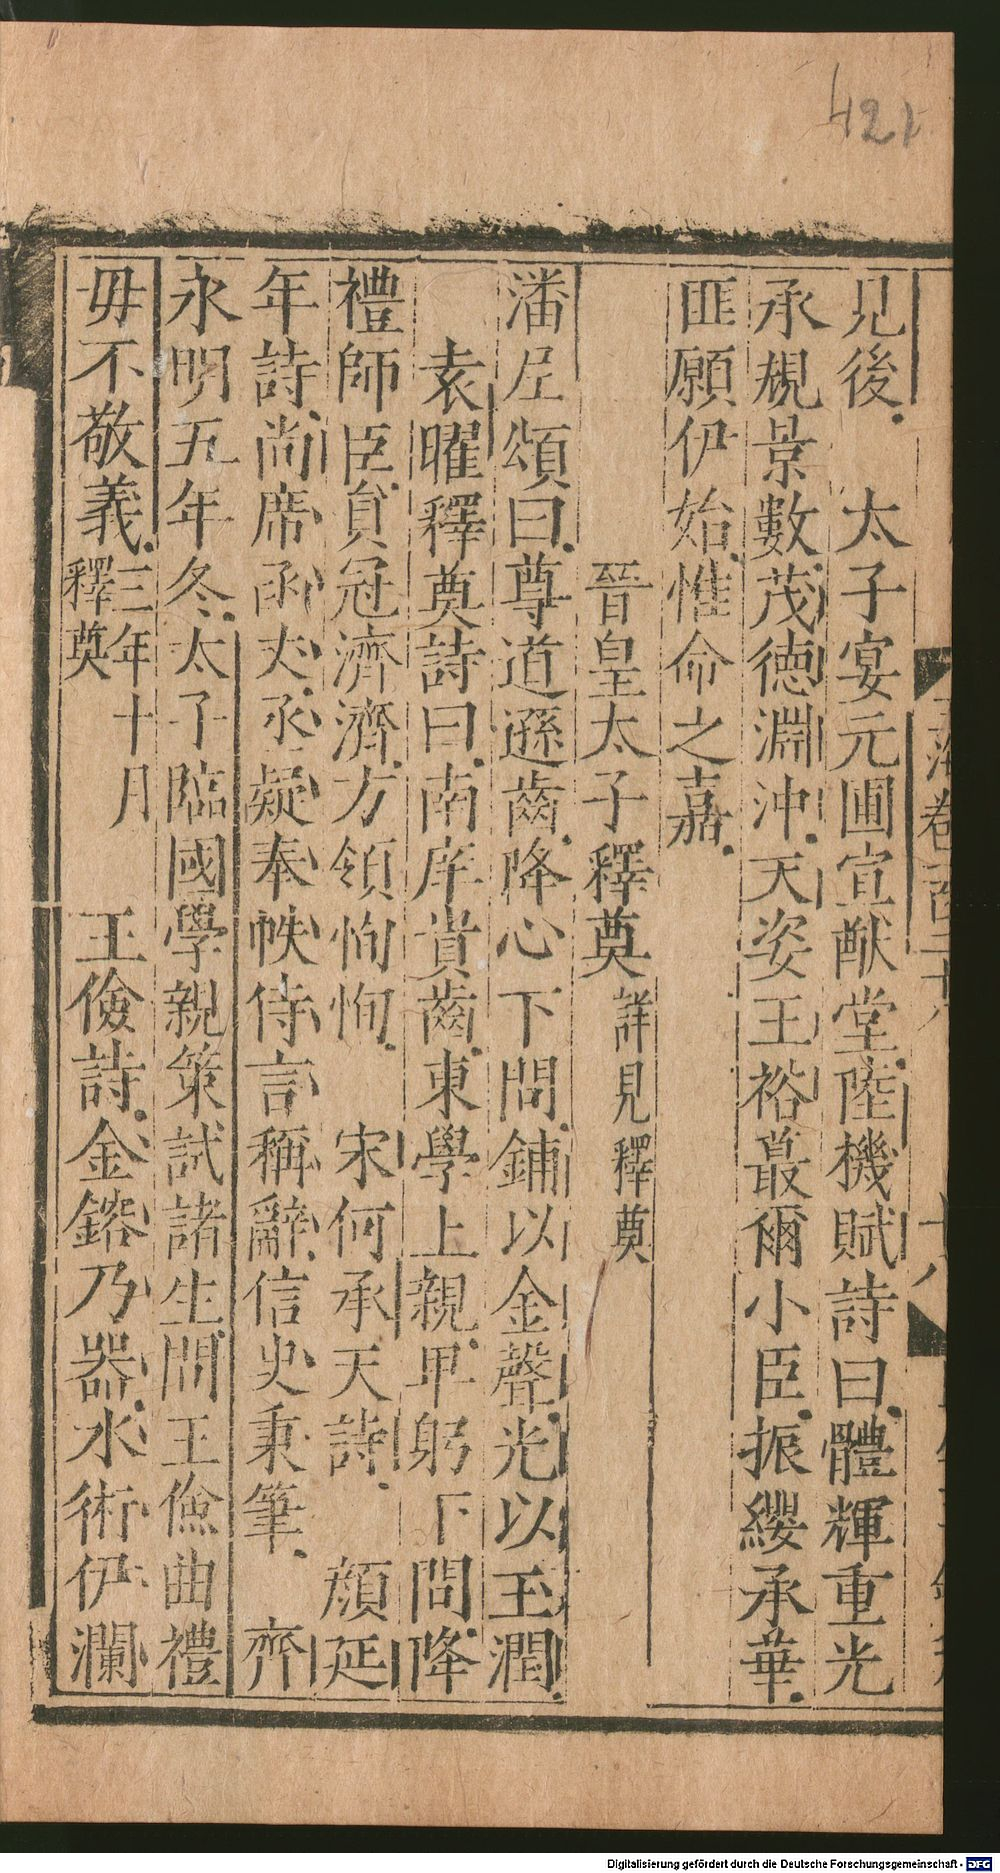 421
見後 太子宴元圃宣猷堂陸機賦詩曰體輝重光
承規景數茂德淵沖天姿玉裕蕞爾小臣振纓承華
匪願伊始惟命之嘉
晉皇太子釋奠詳見釋奠
潘尼頌曰尊道遜齒降心下問鋪以金聲光以玉潤
袁曜釋奠詩曰南庠貴齒東學上親卑躬下問降
禮師臣貟冠濟濟方領恂恂 宋何承天詩 顔延
年詩尚席函丈丞疑奉帙侍言稱辭信史秉筆 齊
永明五年冬太子臨國學親策試諸生問王儉曲禮
毋不敬義三年十月釋奠 王儉詩金鎔乃器水術伊瀾
Digitalisierung gefördert durch die Deutsche Forschungsgemeinschaft - DFG